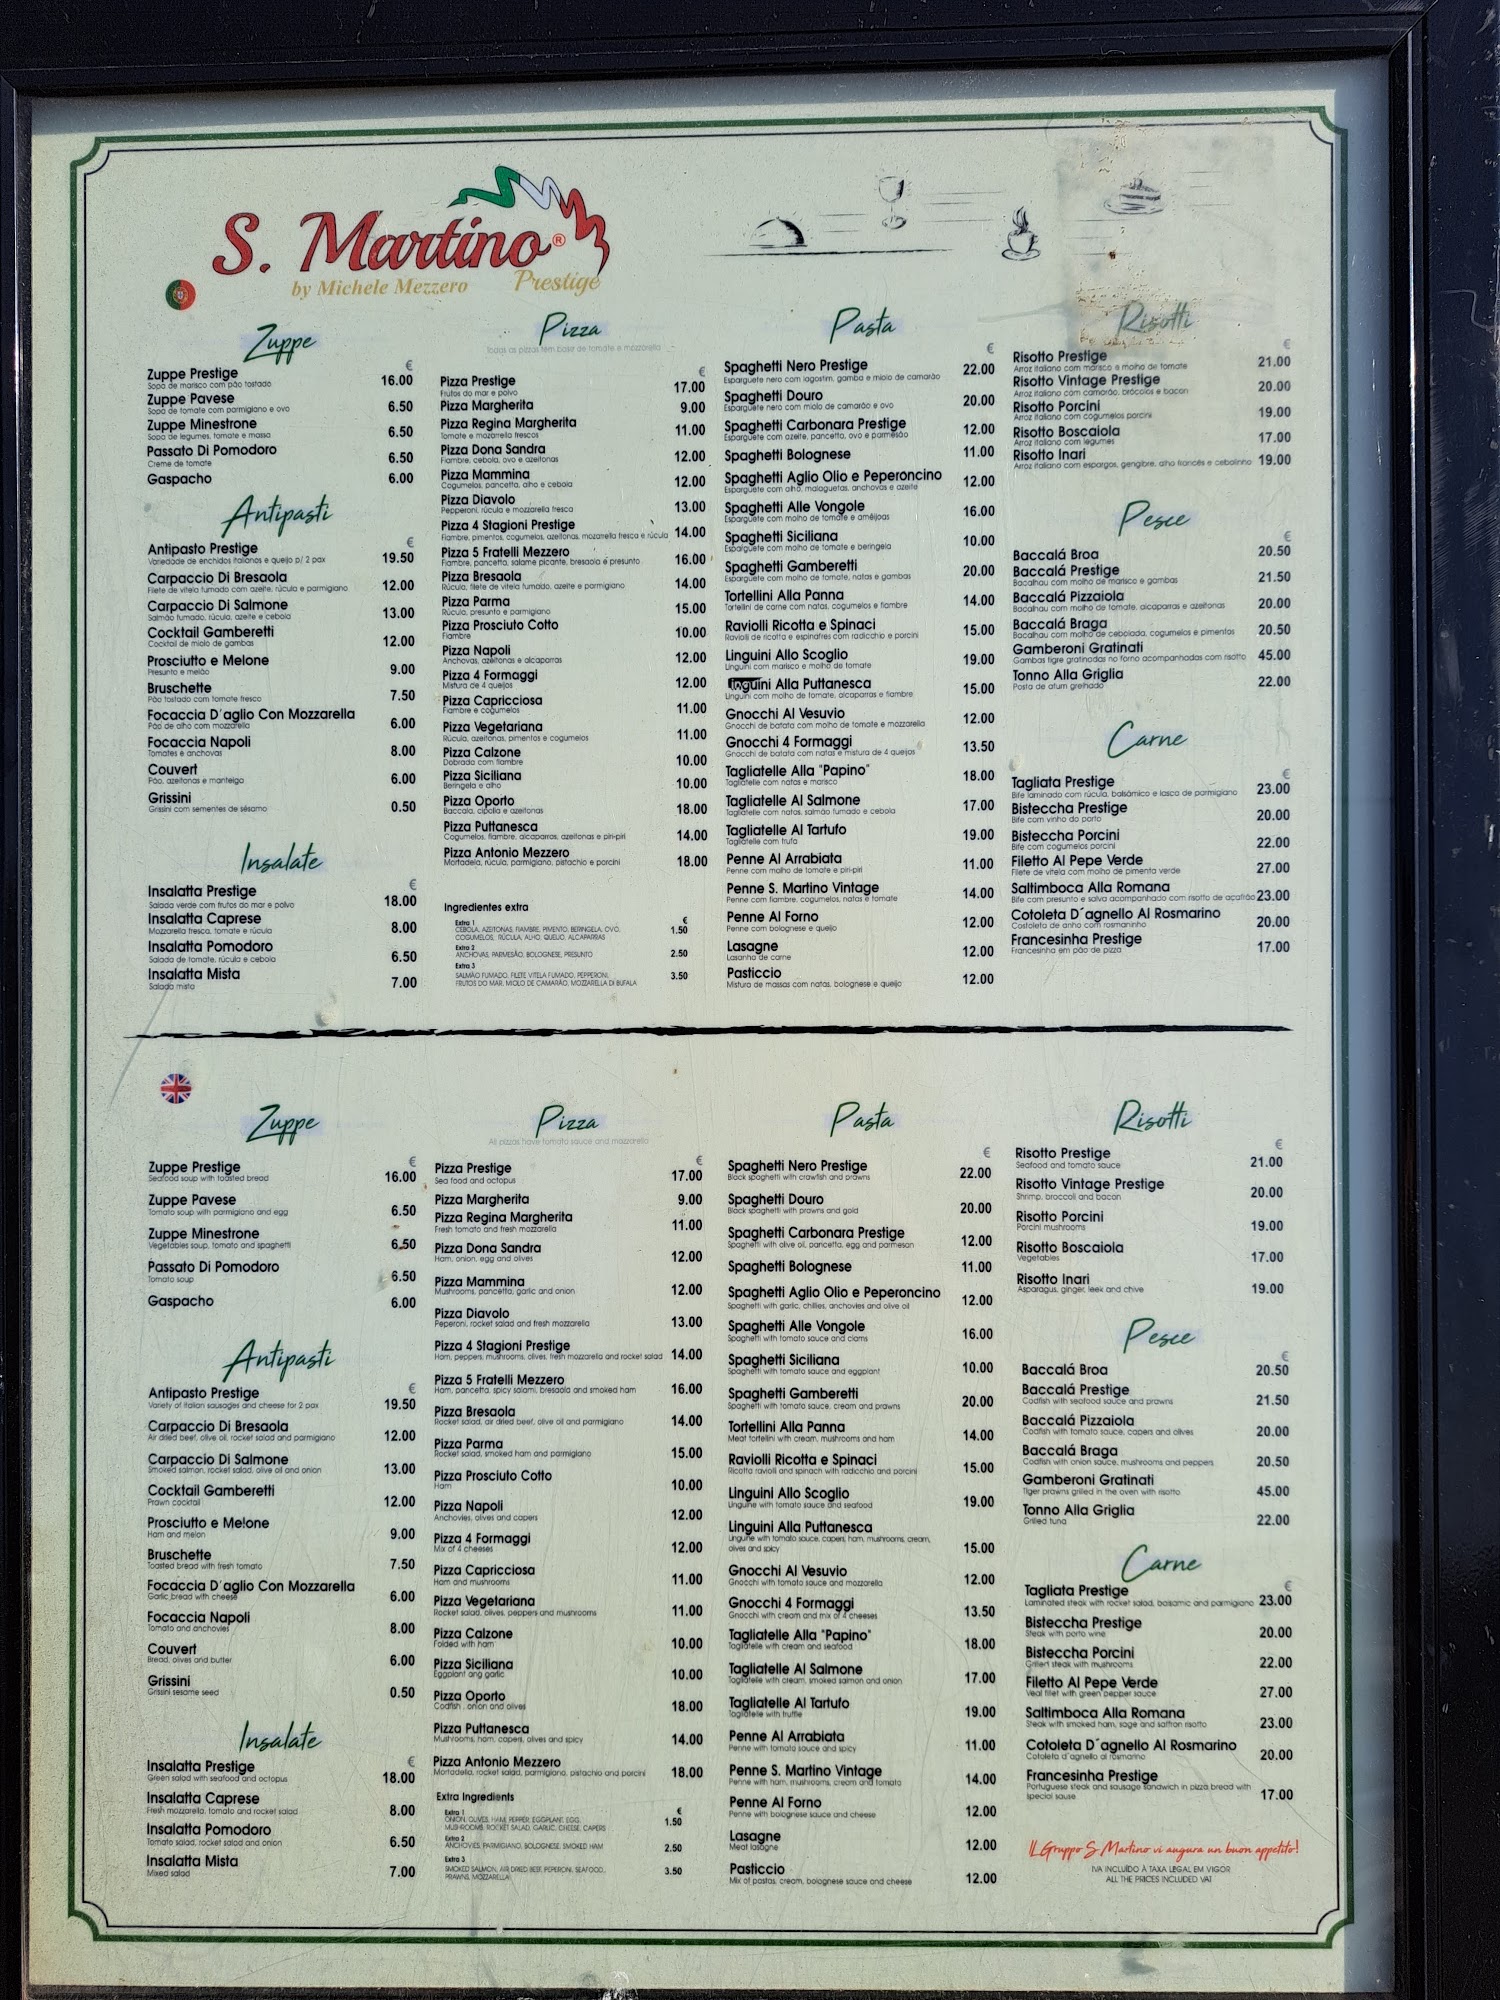 S. Martino®
by Michele Mezzero Prestige
Zuppe
€
Zuppe Prestige 16.00
Sopa de marisco com pão tostado
Zuppe Pavese 6.50
Sopa de tomate com parmigiano e ovo
Zuppe Minestrone 6.50
Sopa de legumes, tomate e massa
Passato Di Pomodoro 6.50
Creme de tomate
Gaspacho 6.00
Antipasti
€
Antipasto Prestige 19.50
Variedade de enchidos italianos e queijo p/ 2 pax
Carpaccio Di Bresaola 12.00
Filete de vitela fumado com azeite, rúcula e parmigiano
Carpaccio Di Salmone 13.00
Salmão fumado, rúcula, azeite e cebola
Cocktail Gamberetti 12.00
Cocktail de miolo de gambas
Prosciutto e Melone 9.00
Presunto e melão
Bruschette 7.50
Pão tostado com tomate fresco
Focaccia D'aglio Con Mozzarella 6.00
Pão de alho com mozzarella
Focaccia Napoli 8.00
Tomates e anchovas
Couvert 6.00
Pão, azeitonas e manteiga
Grissini 0.50
Grisini com sementes de sésamo
Insalate
€
Insalatta Prestige 18.00
Salada verde com frutos do mar e polvo
Insalatta Caprese 8.00
Mozzarella fresca, tomate e rúcula
Insalatta Pomodoro 6.50
Salada de tomate, rúcula e cebola
Insalatta Mista 7.00
Salada mista
Pizza
Todas as pizzas têm base de tomate e mozzarella
€
Pizza Prestige 17.00
Frutos do mar e polvo
Pizza Margherita 9.00
Pizza Regina Margherita 11.00
Tomate e mozarrella frescos
Pizza Dona Sandra 12.00
Fiambre, cebola, ovo e azeitonas
Pizza Mammina 12.00
Cogumelos, pancetta, alho e cebola
Pizza Diavolo 13.00
Pepperoni, rúcula e mozzarella fresca
Pizza 4 Stagioni Prestige 14.00
Fiambre, pimentos, cogumelos, azeitonas, mozarrella fresca e rúcula
Pizza 5 Fratelli Mezzero 16.00
Fiambre, pancetta, salame picante, bresaola e presunto
Pizza Bresaola 14.00
Rúcula, filete de vitela fumado, azeite e parmigiano
Pizza Parma 15.00
Rúcula, presunto e parmigiano
Pizza Prosciuto Cotto 10.00
Fiambre
Pizza Napoli 12.00
Anchovas, azeitonas e alcaparras
Pizza 4 Formaggi 12.00
Mistura de 4 queijos
Pizza Capricciosa 11.00
Fiambre e cogumelos
Pizza Vegetariana 11.00
Rúcula, azeitonas, pimentos e cogumelos
Pizza Calzone 10.00
Dobrado com fiambre
Pizza Siciliana 10.00
Beringela e alho
Pizza Oporto 18.00
Baccala, cipolla e azeitonas
Pizza Puttanesca 14.00
Cogumelos, fiambre, alcaparras, azeitonas e piri-piri
Pizza Antonio Mezzero 18.00
Mortadela, rúcula, parmigiano, pistachio e porcini
Ingredientes extra
€
Extra 1 1.50
CEBOLA, AZEITONAS, FIAMBRE, PIMENTO, BERINGELA, OVO,
COGUMELOS, RÚCULA, ALHO, QUEIJO, ALCAPARRAS
Extra 2 2.50
ANCHOVAS, PARMESÃO, BOLOGNESE, PRESUNTO
Extra 3 3.50
SALMÃO FUMADO, FILETE VITELA FUMADO, PEPPERONI,
FRUTOS DO MAR, MIOLO DE CAMARÃO, MOZZARELLA DI BUFALA
Pasta
€
Spaghetti Nero Prestige 22.00
Esparguete nero com lagostim, gamba e miolo de camarão
Spaghetti Douro 20.00
Esparguete nero com miolo de camarão e ovo
Spaghetti Carbonara Prestige 12.00
Esparguete com azeite, pancetta, ovo e parmesão
Spaghetti Bolognese 11.00
Spaghetti Aglio Olio e Peperoncino 12.00
Esparguete com alho, malaguetas, anchovas e azeite
Spaghetti Alle Vongole 16.00
Esparguete com molho de tomate e amêijoas
Spaghetti Siciliana 10.00
Esparguete com molho de tomate e beringela
Spaghetti Gamberetti 20.00
Esparguete com molho de tomate, natas e gambas
Tortellini Alla Panna 14.00
Tortellini de carne com natas, cogumelos e fiambre
Raviolli Ricotta e Spinaci 15.00
Ravioli de ricotta e espinafres com radicchio e porcini
Linguini Allo Scoglio 19.00
Linguini com marisco e molho de tomate
Linguini Alla Puttanesca 15.00
Linguini com molho de tomate, alcaparras e fiambre
Gnocchi Al Vesuvio 12.00
Gnocchi de batata com molho de tomate e mozzarella
Gnocchi 4 Formaggi 13.50
Gnocchi de batata com natas e mistura de 4 queijos
Tagliatelle Alla "Papino" 18.00
Tagliatelle com natas e marisco
Tagliatelle Al Salmone 17.00
Tagliatelle com natas, salmão fumado e cebola
Tagliatelle Al Tartufo 19.00
Tagliatelle com trufa
Penne Al Arrabiata 11.00
Penne com molho de tomate e piri-piri
Penne S. Martino Vintage 14.00
Penne com fiambre, cogumelos, natas e tomate
Penne Al Forno 12.00
Penne com bolognese e queijo
Lasagne 12.00
Lasanha de carne
Pasticcio 12.00
Mistura de massas com natas, bolognese e queijo
Risotti
€
Risotto Prestige 21.00
Arroz italiano com marisco e molho de tomate
Risotto Vintage Prestige 20.00
Arroz italiano com camarão, brócolos e bacon
Risotto Porcini 19.00
Arroz italiano com cogumelos porcini
Risotto Boscaiola 17.00
Arroz italiano com legumes
Risotto Inari 19.00
Arroz italiano com espargos, gengibre, alho francês e cebolinho
Pesce
€
Baccalá Broa 20.50
Baccalá Prestige 21.50
Bacalhau com molho de marisco e gambas
Baccalá Pizzaiola 20.00
Bacalhau com molho de tomate, alcaparras e azeitonas
Baccalá Braga 20.50
Bacalhau com molho de cebolada, cogumelos e pimentos
Gamberoni Gratinati 45.00
Gambas tigre gratinadas no forno acompanhadas com risotto
Tonno Alla Griglia 22.00
Posta de atum grelhado
Carne
€
Tagliata Prestige 23.00
Bife laminado com rúcula, balsâmico e lasca de parmigiano
Bisteccha Prestige 20.00
Bife com vinho do porto
Bisteccha Porcini 22.00
Bife com cogumelos porcini
Filetto Al Pepe Verde 27.00
Filete de vitela com molho de pimenta verde
Saltimboca Alla Romana 23.00
Bife com presunto e salva acompanhado com risotto de açafrão
Cotoleta D´agnello Al Rosmarino 20.00
Costoleta de anho com rosmaninho
Francesinha Prestige 17.00
Francesinha em pão de pizza
Zuppe
€
Zuppe Prestige 16.00
Seafood soup with toasted bread
Zuppe Pavese 6.50
Tomato soup with parmigiano and egg
Zuppe Minestrone 6.50
Vegetables soup, tomato and spaghetti
Passato Di Pomodoro 6.50
Tomato soup
Gaspacho 6.00
Antipasti
€
Antipasto Prestige 19.50
Variety of italian sausages and cheese for 2 pax
Carpaccio Di Bresaola 12.00
Air dried beef, olive oil, rocket salad and parmigiano
Carpaccio Di Salmone 13.00
Smoked salmon, rocket salad, olive oil and onion
Cocktail Gamberetti 12.00
Prawn cocktail
Prosciutto e Melone 9.00
Ham and melon
Bruschette 7.50
Toasted bread with fresh tomato
Focaccia D'aglio Con Mozzarella 6.00
Garlic bread with cheese
Focaccia Napoli 8.00
Tomato and anchovies
Couvert 6.00
Bread, olives and butter
Grissini 0.50
Grissini sesame seed
Insalate
€
Insalatta Prestige 18.00
Green salad with seafood and octopus
Insalatta Caprese 8.00
Fresh mozzarella, tomato and rocket salad
Insalatta Pomodoro 6.50
Tomato salad, rocket salad and onion
Insalatta Mista 7.00
Mixed salad
Pizza
All pizzas have tomato sauce and mozzarella
€
Pizza Prestige 17.00
Sea food and octopus
Pizza Margherita 9.00
Pizza Regina Margherita 11.00
Fresh tomato and fresh mozzarella
Pizza Dona Sandra 12.00
Ham, onion, egg and olives
Pizza Mammina 12.00
Mushrooms, pancetta, garlic and onion
Pizza Diavolo 13.00
Peperoni, rocket salad and fresh mozzarella
Pizza 4 Stagioni Prestige 14.00
Ham, peppers, mushrooms, olives, fresh mozzarella and rocket salad
Pizza 5 Fratelli Mezzero 16.00
Ham, pancetta, spicy salami, bresaola and smoked ham
Pizza Bresaola 14.00
Rocket salad, air dried beef, olive oil and parmigiano
Pizza Parma 15.00
Rocket salad, smoked ham and parmigiano
Pizza Prosciuto Cotto 10.00
Ham
Pizza Napoli 12.00
Anchovies, olives and capers
Pizza 4 Formaggi 12.00
Mix of 4 cheeses
Pizza Capricciosa 11.00
Ham and mushrooms
Pizza Vegetariana 11.00
Rocket salad, olives, peppers and mushrooms
Pizza Calzone 10.00
Folded with ham
Pizza Siciliana 10.00
Eggplant ang garlic
Pizza Oporto 18.00
Codfish , onion and olives
Pizza Puttanesca 14.00
Mushrooms, ham, capers, olives and spicy
Pizza Antonio Mezzero 18.00
Mortadella, rocket salad, parmigiano, pistachio and porcini
Extra Ingredients
€
Extra 1 1.50
ONION, OLIVES, HAM, PEPPER, EGGPLANT, EGG,
MUSHROOMS, ROCKET SALAD, GARLIC, CHEESE, CAPERS
Extra 2 2.50
ANCHOVIES, PARMIGIANO, BOLOGNESE, SMOKED HAM
Extra 3 3.50
SMOKED SALMON, AIR DRIED BEEF, PEPERONI, SEAFOOD,
PRAWNS, MOZZARELLA
Pasta
€
Spaghetti Nero Prestige 22.00
Black spaghetti with crawfish and prawns
Spaghetti Douro 20.00
Black spaghetti with prawns and gold
Spaghetti Carbonara Prestige 12.00
Spaghetti with olive oil, pancetta, egg and parmesan
Spaghetti Bolognese 11.00
Spaghetti Aglio Olio e Peperoncino 12.00
Spaghetti with garlic, chillies, anchovies and olive oil
Spaghetti Alle Vongole 16.00
Spaghetti with tomato sauce and clams
Spaghetti Siciliana 10.00
Spaghetti with tomato sauce and eggplant
Spaghetti Gamberetti 20.00
Spaghetti with tomato sauce, cream and prawns
Tortellini Alla Panna 14.00
Meat tortellini with cream, mushrooms and ham
Raviolli Ricotta e Spinaci 15.00
Ricotta ravioli and spinach with radicchio and porcini
Linguini Allo Scoglio 19.00
Linguine with tomato sauce and seafood
Linguini Alla Puttanesca 15.00
Linguine with tomato sauce, capers, ham, mushrooms, cream,
olives and spicy
Gnocchi Al Vesuvio 12.00
Gnocchi with tomato sauce and mozzarella
Gnocchi 4 Formaggi 13.50
Gnocchi with cream and mix of 4 cheeses
Tagliatelle Alla "Papino" 18.00
Tagliatelle with cream and seafood
Tagliatelle Al Salmone 17.00
Tagliatelle with cream, smoked salmon and onion
Tagliatelle Al Tartufo 19.00
Tagliatelle with truffle
Penne Al Arrabiata 11.00
Penne with tomato sauce and spicy
Penne S. Martino Vintage 14.00
Penne with ham, mushrooms, cream and tomato
Penne Al Forno 12.00
Penne with bolognese sauce and cheese
Lasagne 12.00
Meat lasagne
Pasticcio 12.00
Mix of pastas, cream, bolognese sauce and cheese
Risotti
€
Risotto Prestige 21.00
Seafood and tomato sauce
Risotto Vintage Prestige 20.00
Shrimp, broccoli and bacon
Risotto Porcini 19.00
Porcini mushrooms
Risotto Boscaiola 17.00
Vegetables
Risotto Inari 19.00
Asparagus, ginger, leek and chive
Pesce
€
Baccalá Broa 20.50
Baccalá Prestige 21.50
Codfish with seafood sauce and prawns
Baccalá Pizzaiola 20.00
Codfish with tomato sauce, capers and olives
Baccalá Braga 20.50
Codfish with onion sauce, mushrooms and peppers
Gamberoni Gratinati 45.00
Tiger prawns grilled in the oven with risotto
Tonno Alla Griglia 22.00
Grilled tuna
Carne
€
Tagliata Prestige 23.00
Laminated steak with rocket salad, balsamic and parmigiano
Bisteccha Prestige 20.00
Steak with porto wine
Bisteccha Porcini 22.00
Grilled steak with mushrooms
Filetto Al Pepe Verde 27.00
Veal fillet with green pepper sauce
Saltimboca Alla Romana 23.00
Steak with smoked ham, sage and saffron risotto
Cotoleta D´agnello Al Rosmarino 20.00
Cotoleta d´agnello al rosmarino
Francesinha Prestige 17.00
Portuguese steak and sausage sandwich in pizza bread with
special sause
IL Gruppo S. Martino vi augura un buon appetito!
IVA INCLUÍDO À TAXA LEGAL EM VIGOR
ALL THE PRICES INCLUDED VAT